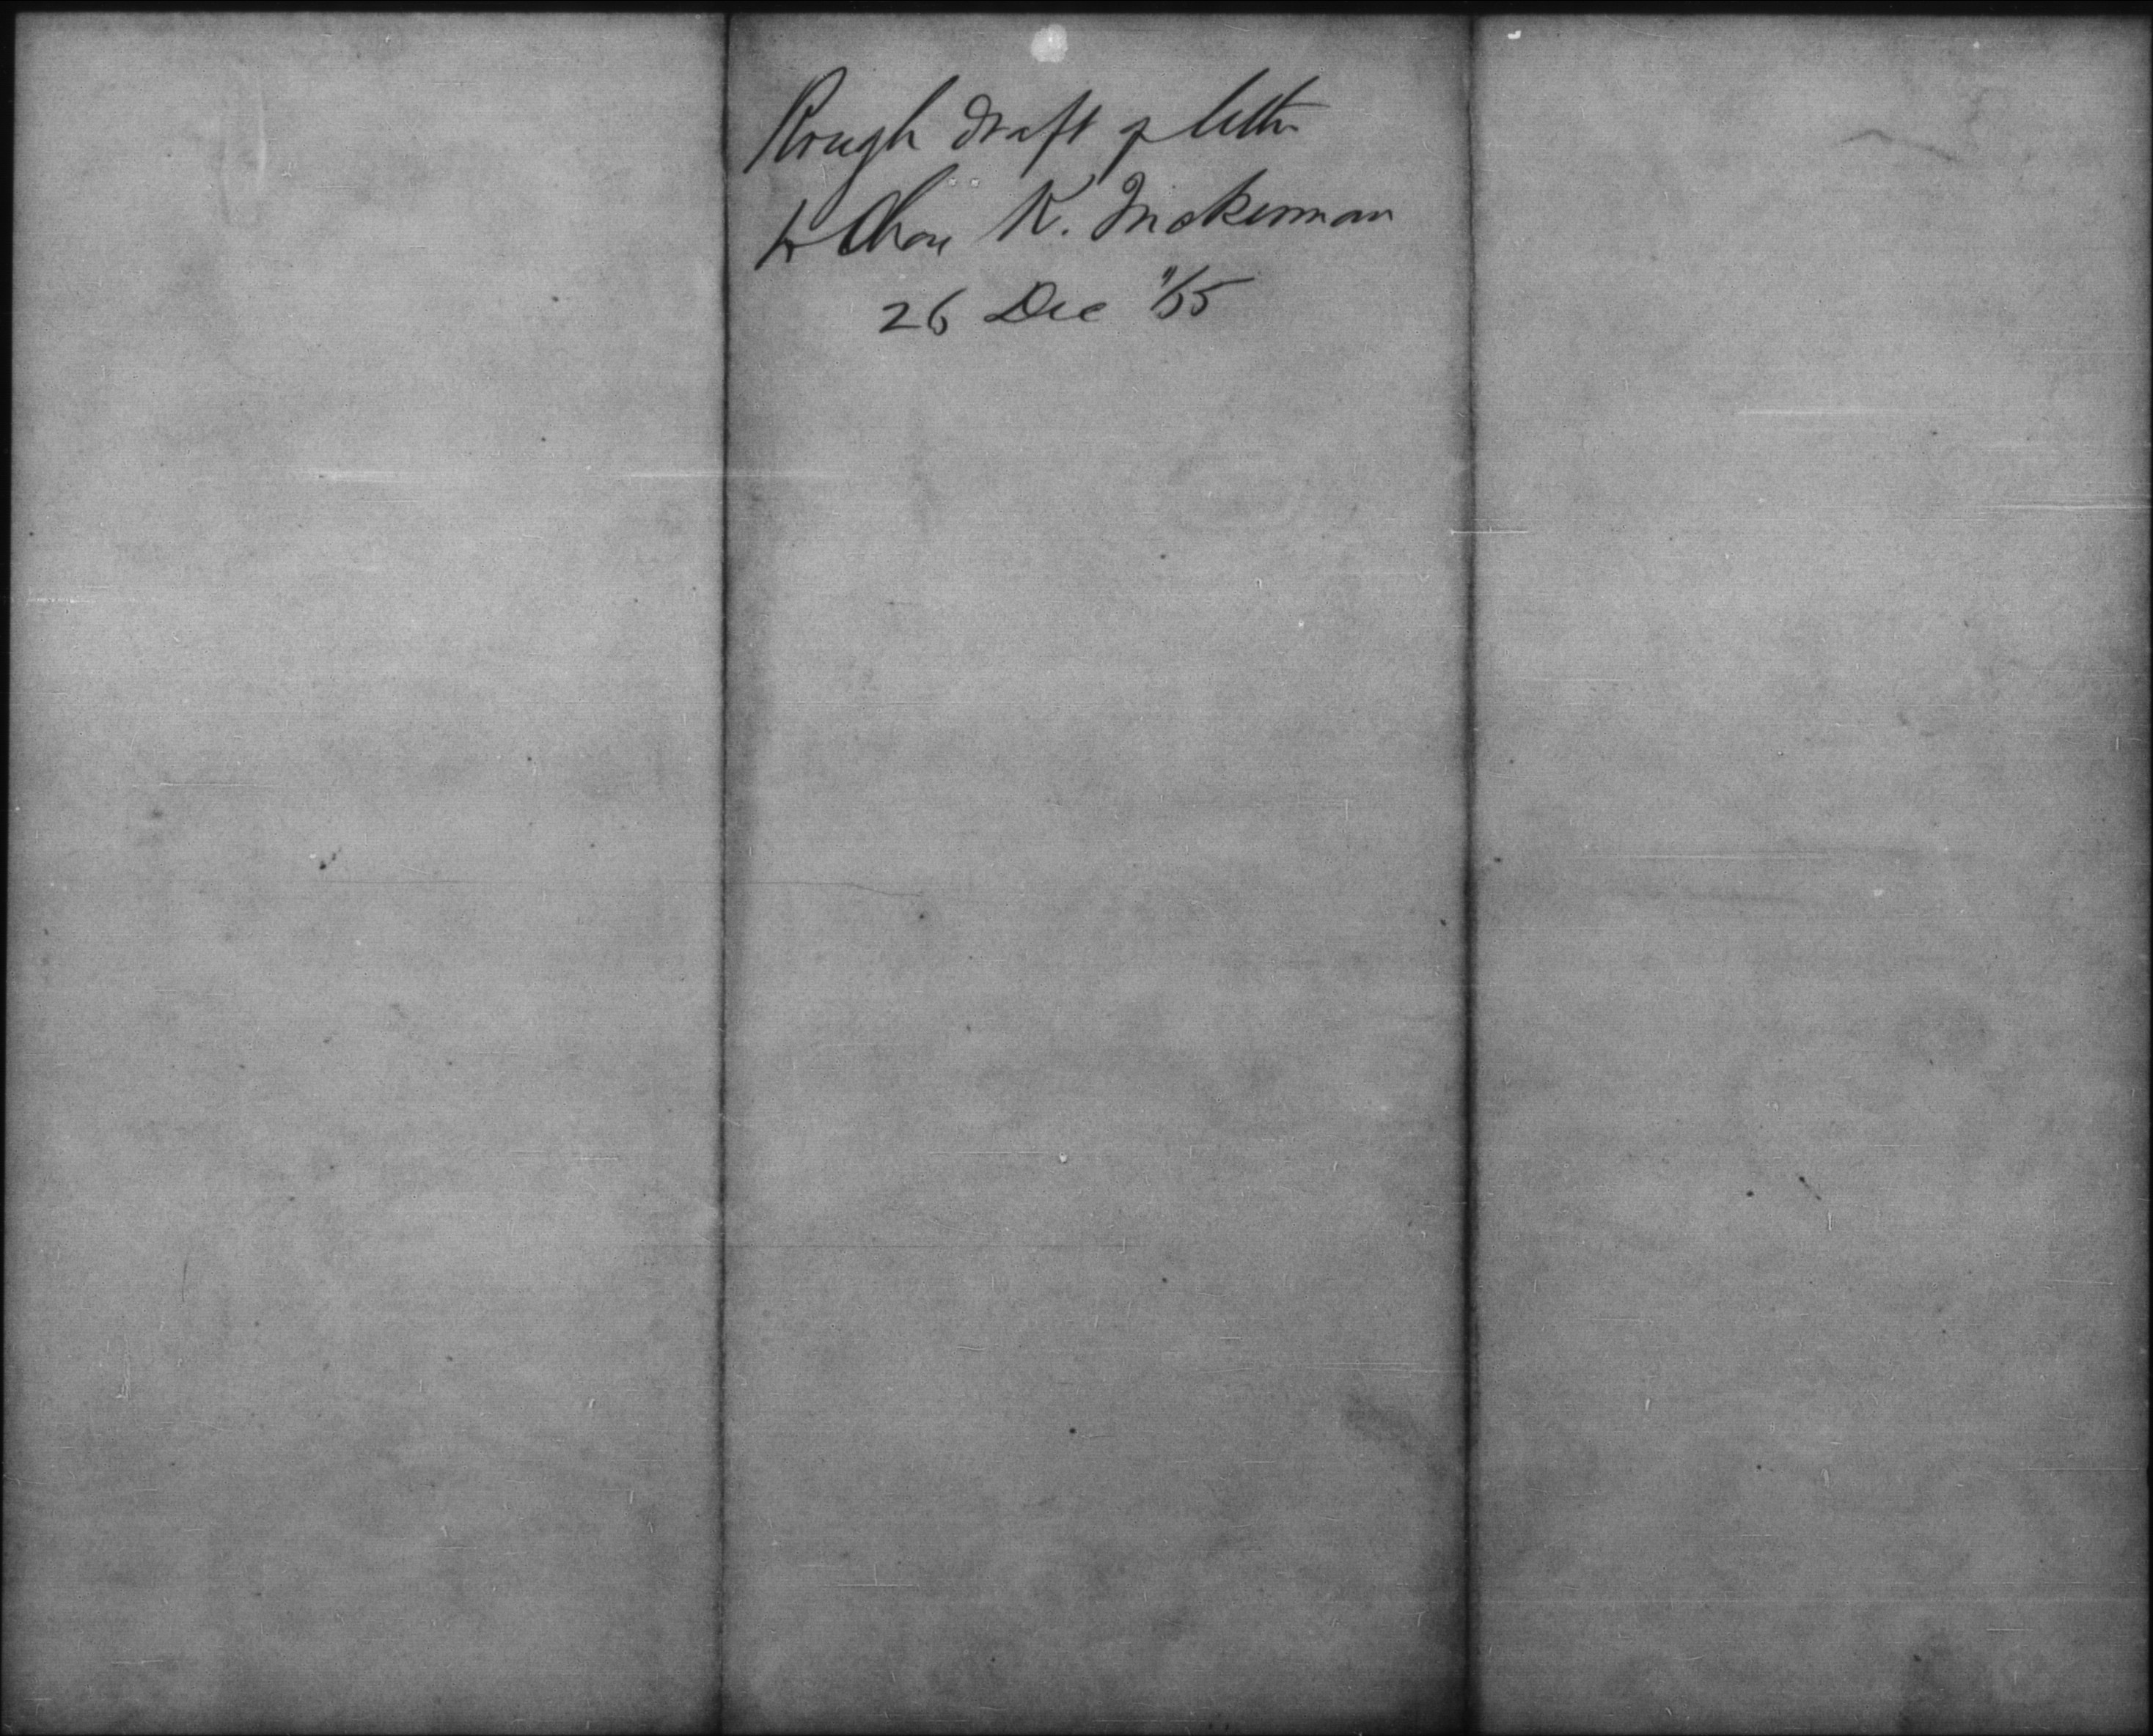 Rough draft of letter
to Chas K. Tuckerman
26 Dec "/55